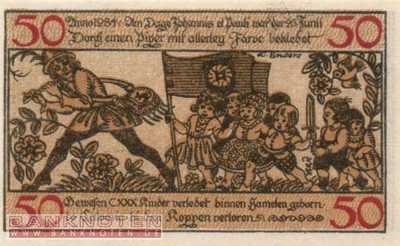 50 Anno 1284: Am Dage Johannis et Pauli war der 26 Junii 50
Dorch einen Piper mit allerley Farve bekledet
E. Enders
50 Gewesen CXXX Kinder verledet binnen Hameln geborn 50
Koppen verloren
BANKNOTEN